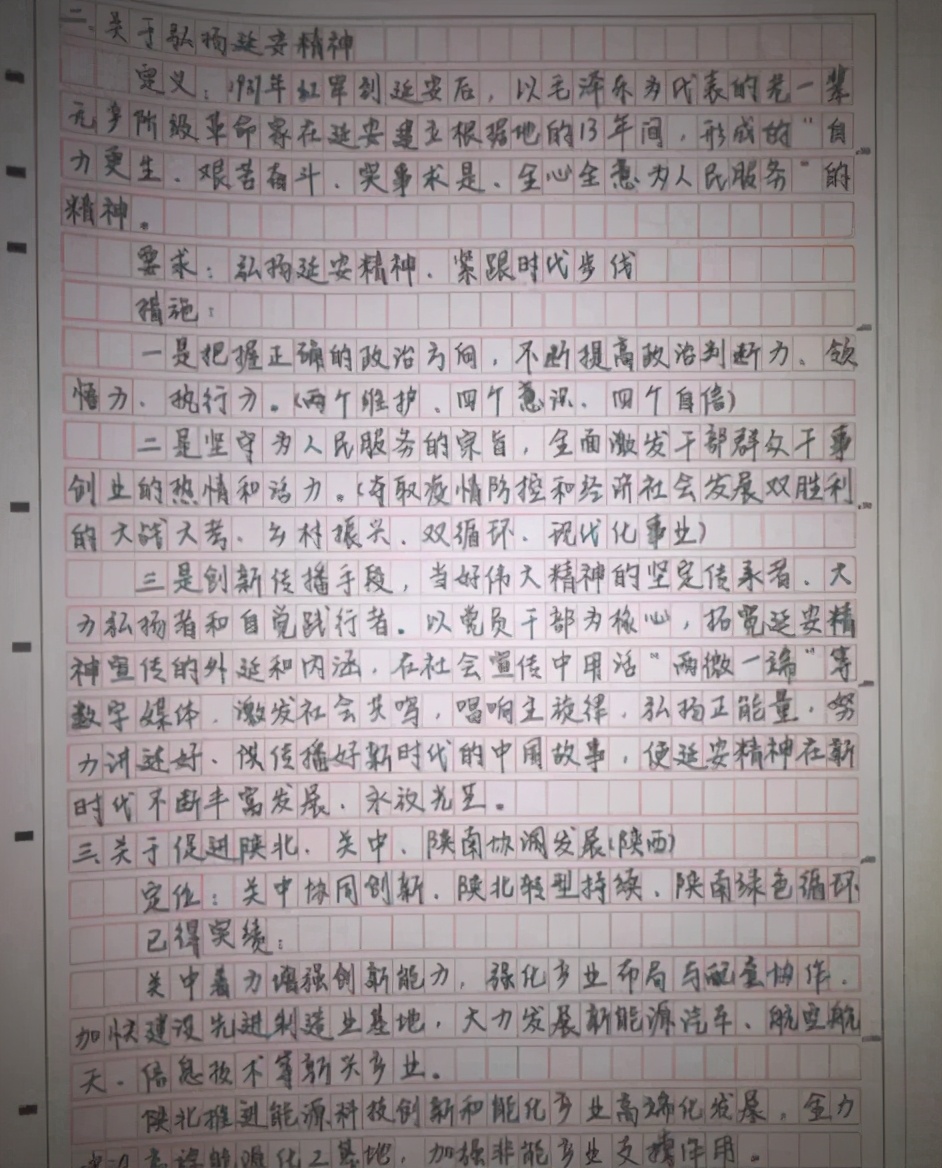 二.关于弘扬延安精神
定义：1937年红军到延安后，以毛泽东为代表的老一辈
无产阶级革命家在延安建立根据地的13年间，形成的“自
力更生、艰苦奋斗、实事求是、全心全意为人民服务”的
精神。
要求：弘扬延安精神、紧跟时代步伐
措施：
一是把握正确的政治方向，不断提高政治判断力、领
悟力、执行力。（两个维护、四个意识、四个自信）
二是坚守为人民服务的宗旨，全面激发干部群众干事
创业的热情和活力。（夺取疫情防控和经济社会发展双胜利
的大战大考、乡村振兴、双循环、现代化事业）
三是创新传播手段，当好伟大精神的坚定传承者、大
力弘扬者和自觉践行者。以党员干部为核心，拓宽延安精
神宣传的外延和内涵，在社会宣传中用活“两微一端”等
数字媒体，激发社会共鸣，唱响主旋律，弘扬正能量，努
力讲述好、传播好新时代的中国故事，使延安精神在新
时代不断丰富发展、永放光芒。
三.关于促进陕北、关中、陕南协调发展（陕西）
定位：关中协同创新、陕北转型持续、陕南绿色循环
已得实绩：
关中着力增强创新能力，强化产业布局与配套协作，
加快建设先进制造业基地，大力发展新能源汽车、航空航
天、信息技术等新兴产业。
陕北推进能源科技创新和能化产业高端化发展，全力
能源化工基地，加强非能产业支撑作用。